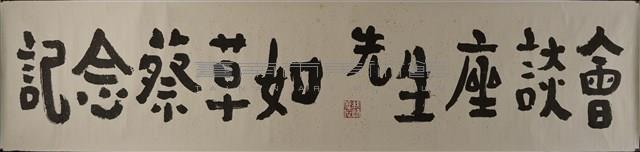 記念蔡草如先生座談會